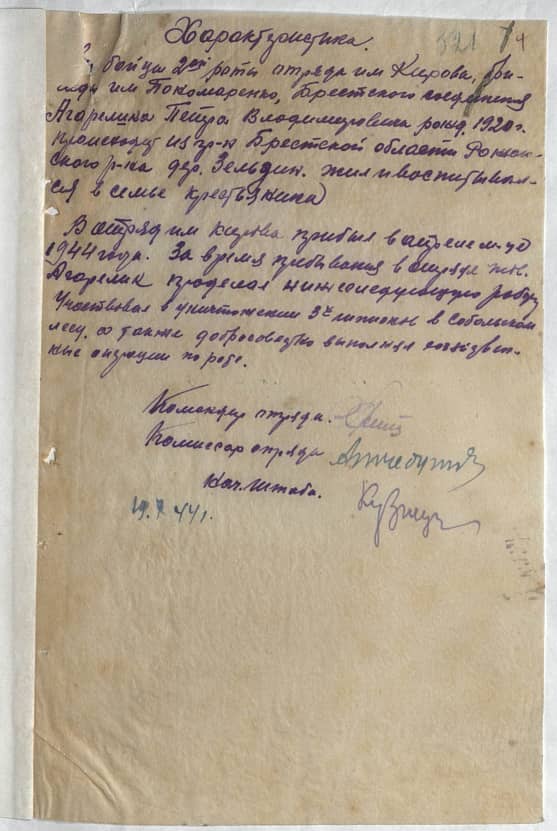 Характеристика.
321 74
бойца 2ой роты отряда им Кирова, бри-
гады им Пономаренко, Брестского соединения
Агарелика Петра Владимировича рожд. 1920 г.
происходит из гр-н Брестской области
ского р-на дер. жил и воспитывал-
ся в семье крестьянина)
В отряд им Кирова прибыл в апреле м-це
1944 года. За время пребывания в отряде
Агарелик проделал нижеследующую работу
Участвовал в уничтожении 3х шпионов в
лесу, а также добросовестно выполнял хозяйствен-
ные операции по роте.
Командир отряда.
Комиссар отряда
Нач. штаба.
19.7 44 г.